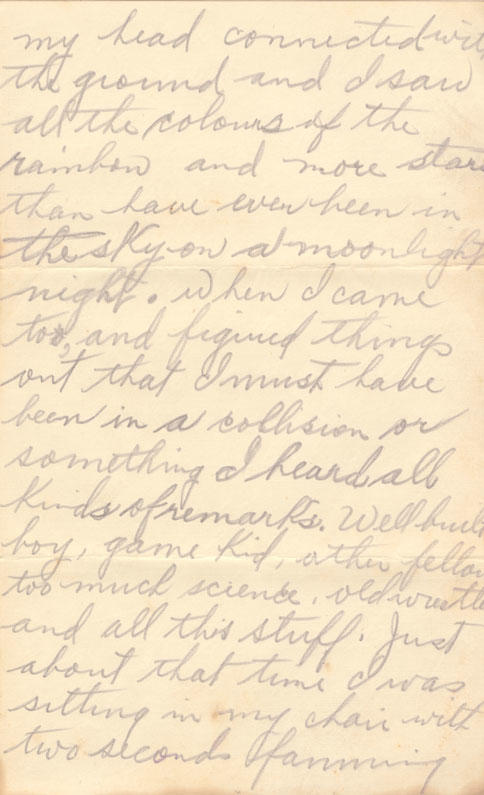 my head connected with
the ground and I saw
all the colours of the
rainbow and more stars
than have ever been in
the sky on a moonlight
night. When I came
too, and figured things
out that I must have
been in a collision or
something I heard all
kinds of remarks. Well built
boy, game kid, other fellow
too much science, old wrestler
and all this stuff. Just
about that time I was
sitting in my chair with
two seconds fanning